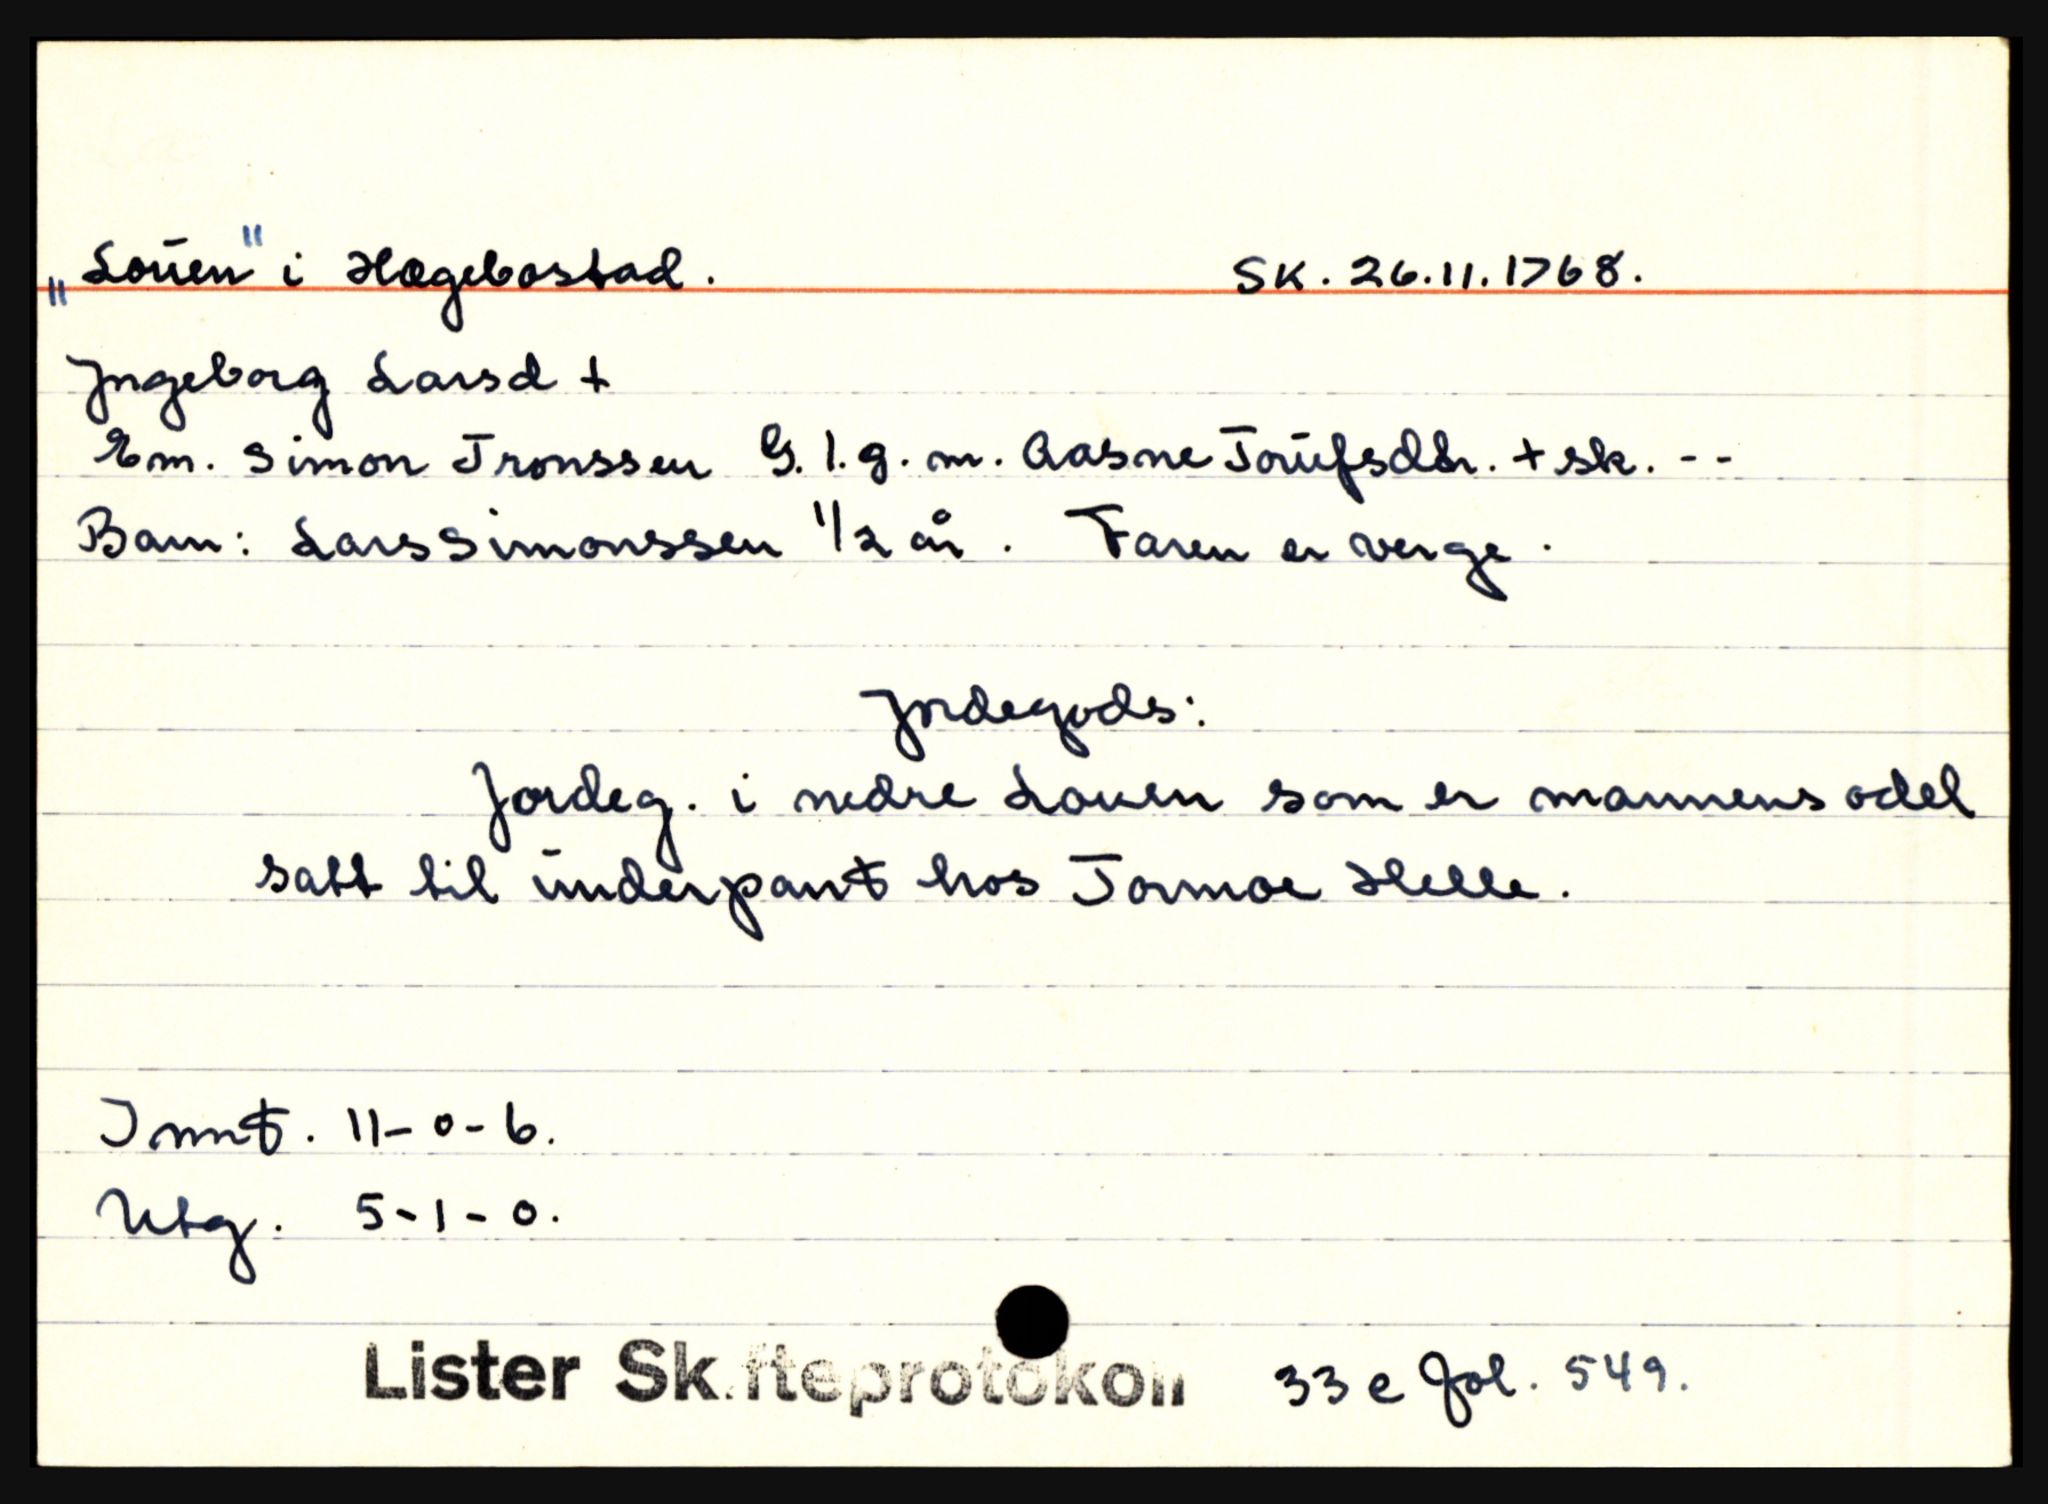 „Louen" i Hægebostad. SK. 26.11.1768.
Jngeborg Larsd +
Em. Simon Tronssen G. 1. g. m. Aasne Toufsdtr. + sk. --
Barn: Lars Simonssen 1/2 år. Faren er verge.
Jordegods:
Jordeg. i nedre Louen som er mannens odel
satt til underpant hos Tormoe Helle.
Innt. 11-0-6.
Utg. 5-1-0.
Lister Skifteprotokoll 33 e fol. 549.